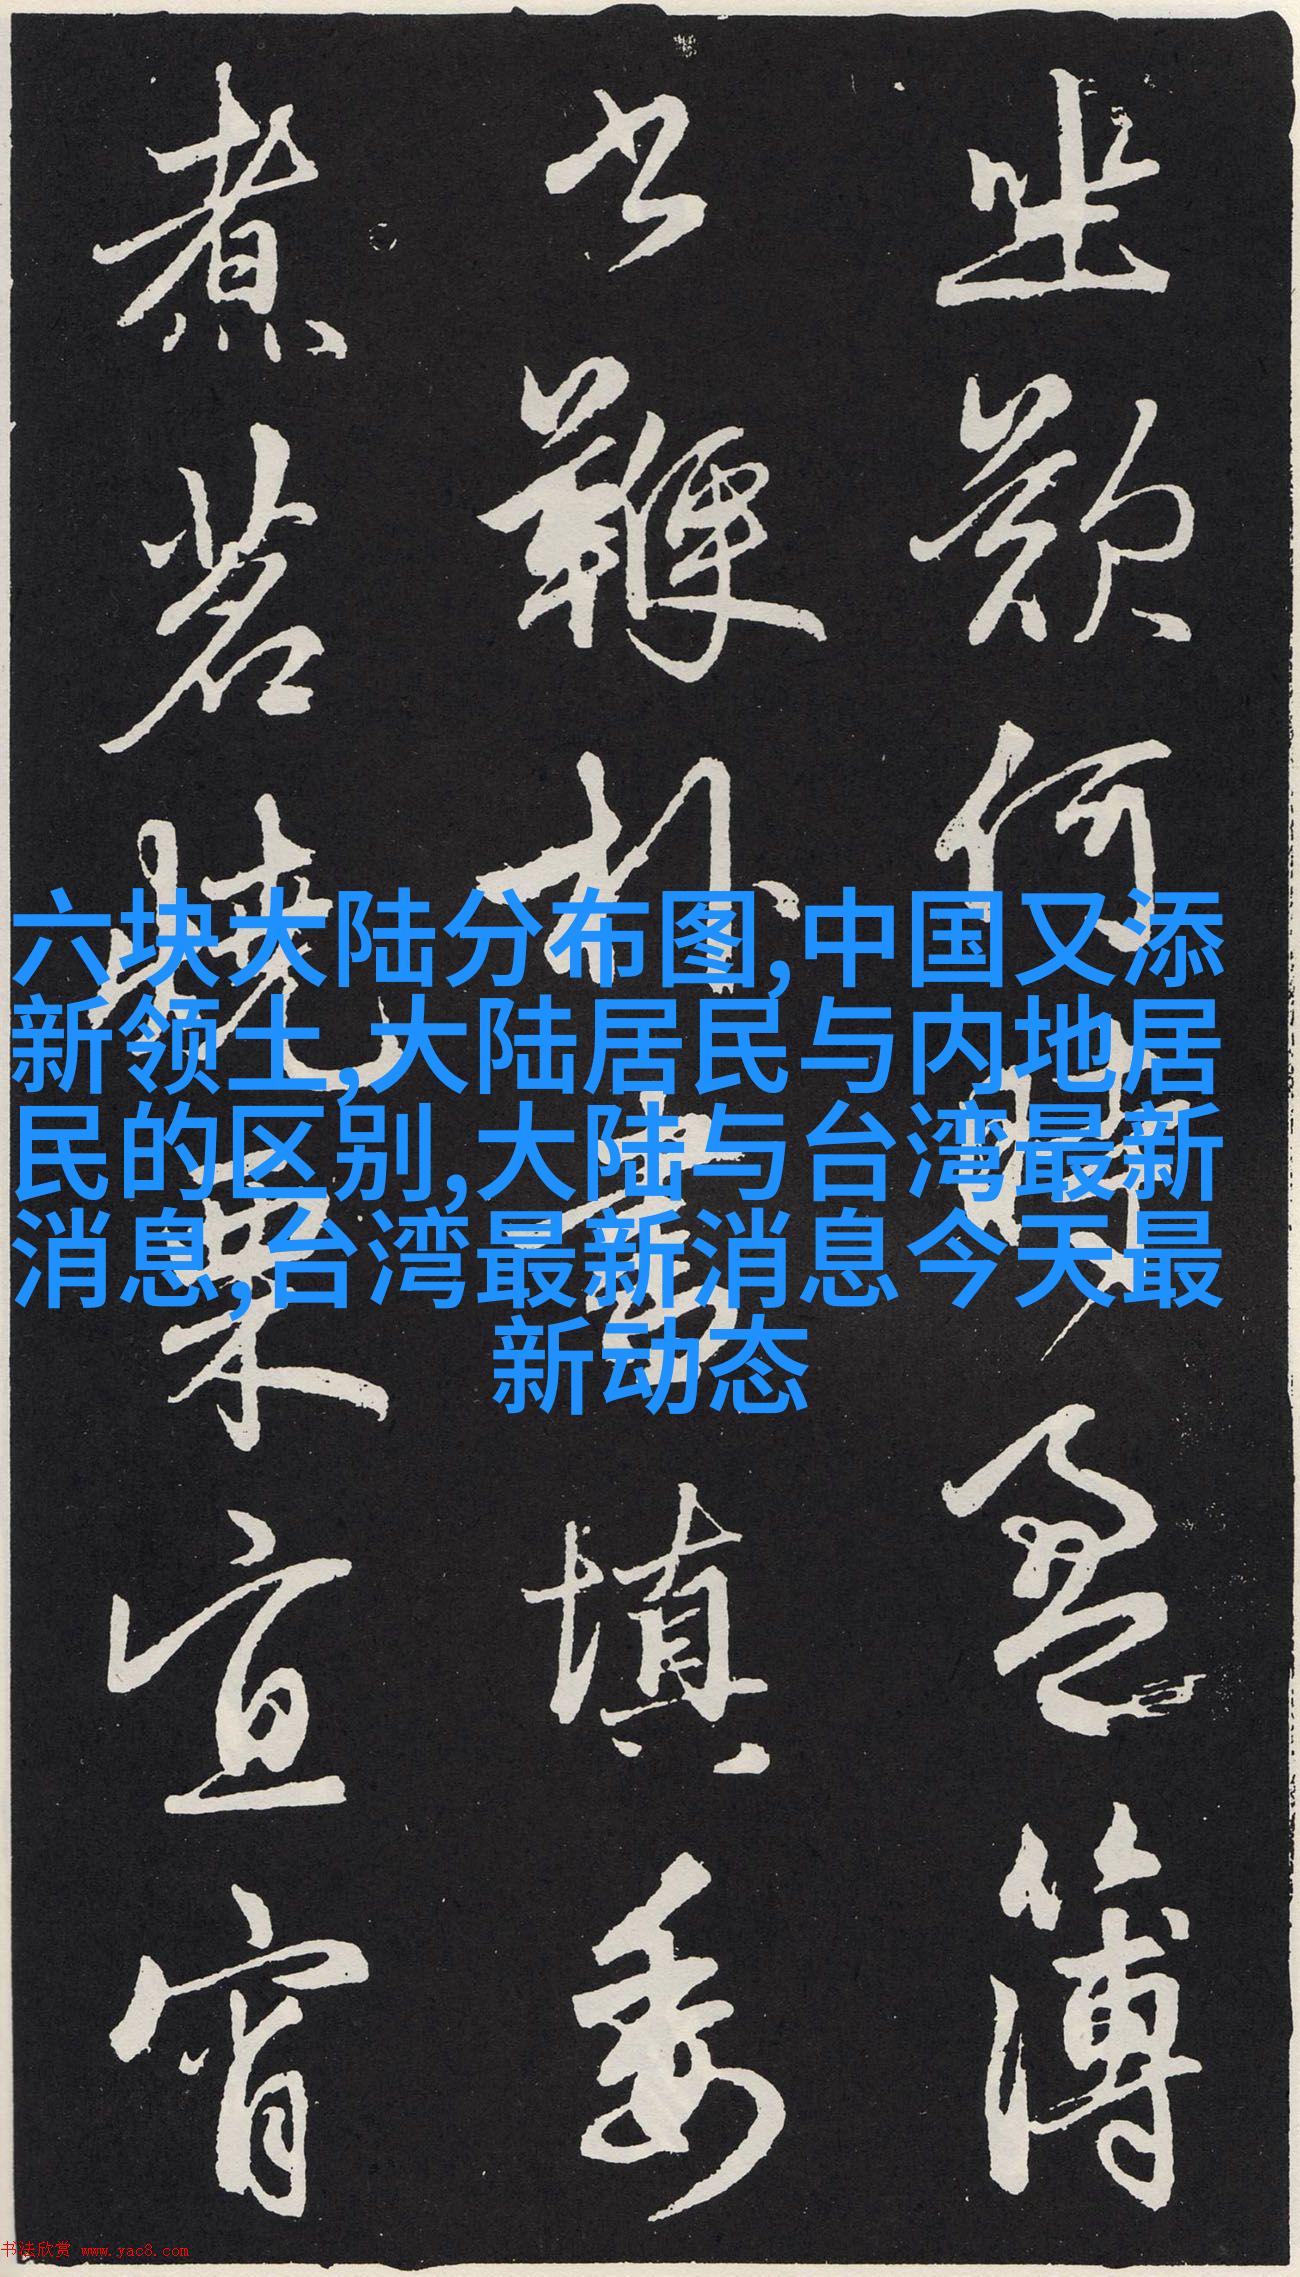 此何時盈簿
書鞭扑晝填委
煮茗燒栗宜宵
六块大陆分布图,中国又添
新领土,大陆居民与内地居
民的区别,大陆与台湾最新
消息,台湾最新消息今天最
新动态
书法欣赏 www.yac8.com